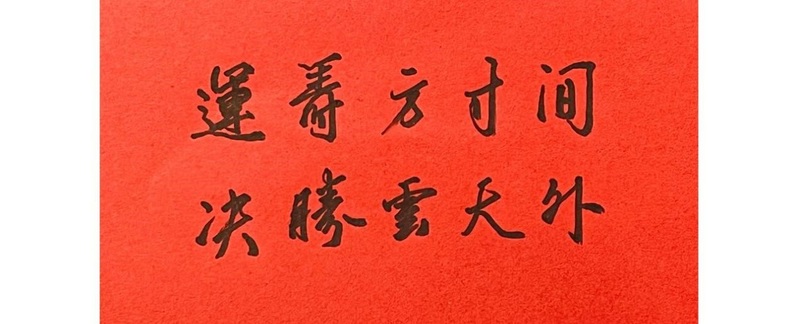 運籌方寸间
决勝雲天外